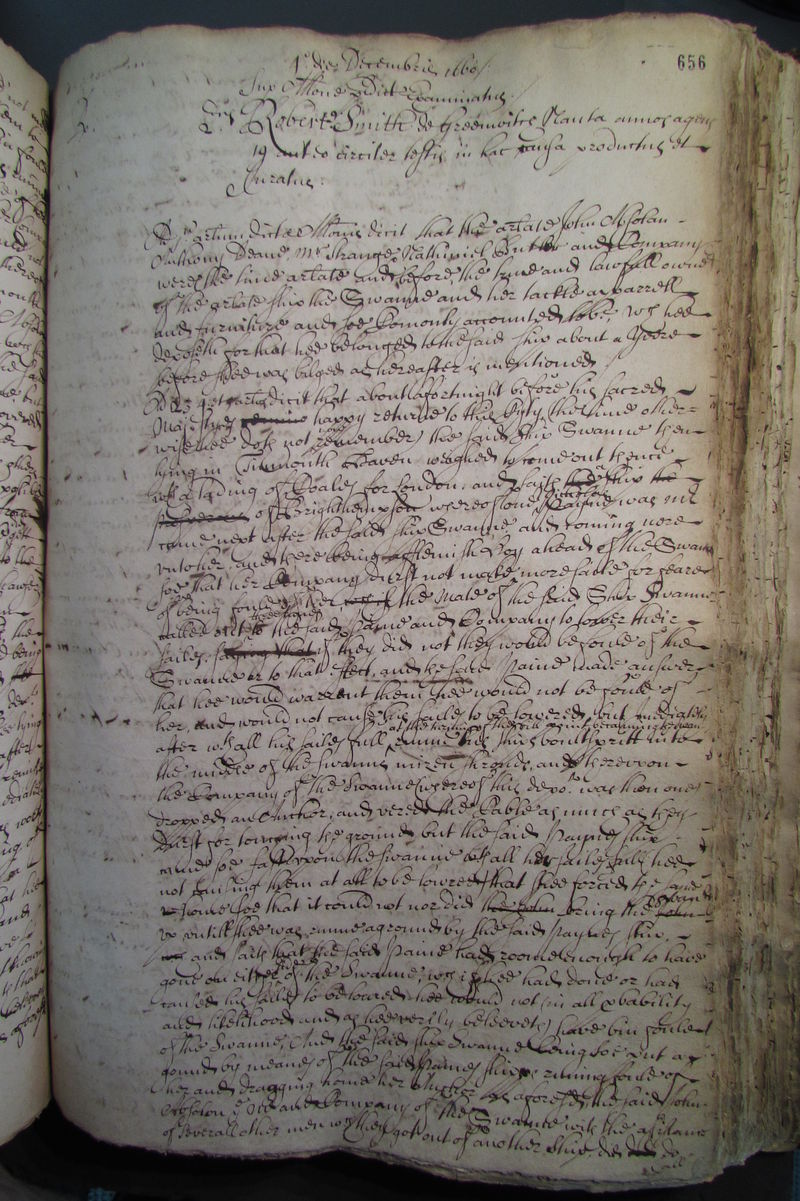 656
1o die Decembris 1660/
Sup Allone pdict Examinatus.
Robertus Smith de Greenwitch Nauta annos agens
19 aut eo circiter testis in hac causa productus et
Juratus:
Ad 1um artum dictæ Allonis dicit that the arlate John Absolon
Anthony Deane, Mr Strange, Nathaniel and Company
were the time arlate and before the true and lawfull owners
of the arlate ship the Swanne and her tackle aparrell
and furniture and soe comonly accounted to be, wch hee
deposeth for that hee belonged to the said ship about a yeere
before shee was bulged as hereafter is mentioned /
dicit that about a fortnight before his sacred
Majestyes happy returne to this City (the time other
wise hee doth not now remember) the said ship Swanne then
lying in Tinmouth Haven weighed to come out thence
wth a lading of Coales for London, and saith ship the
of Brighthempson whereof one Payne was mr
came next after the said ship Swanne and coming nere
unto her, and there being a fflemish hoy ahead of the Swanne
soe that her Company durst not make more saile for feare
of being foule of her the Mate of the said ship Swanne
called out to the said Paine and Company to lower their
sailes, if they did not they would be foule of the
Swanne or to that effect, and the said Paine made answer
that hee would warrent them hee would not be foule of
her, and would not cause his sailes to be lowered, but imediately
after wth all his sailes full runne his ships boultspritt into
the middle of the Swanns mizen shrouds, and thereupon
the Company of the Swanne (whereof this depot was then one)
dropped an Anchor, and vered the Cable as much as they
durst for touching the ground but the said Paynes ship
came soe fast upon the Swanne wth all her sailes full hee
not causing them at all to be lowred that shee forced the said
home soe that it could not nor did bring the Swanne
up untill shee was runne aground by the said Paynes ship,
and saith that the said Paine had roome enough to have
gone on either side of the Swanne, wch if hee had done or had
caused his sailes to be lowered hee would not (in all pbability
and likelihood and as hee verily beleeveth) have bin foule
of the Swanne, And the said ship Swanne being soe put a
ground by meanes of the said Paines ships runing foule of
her and dragging home her Anchor as aforesd, the said John
Absolon and Company of the Swanne wth the assistance
of severall other men wch they got out of another ship, did do